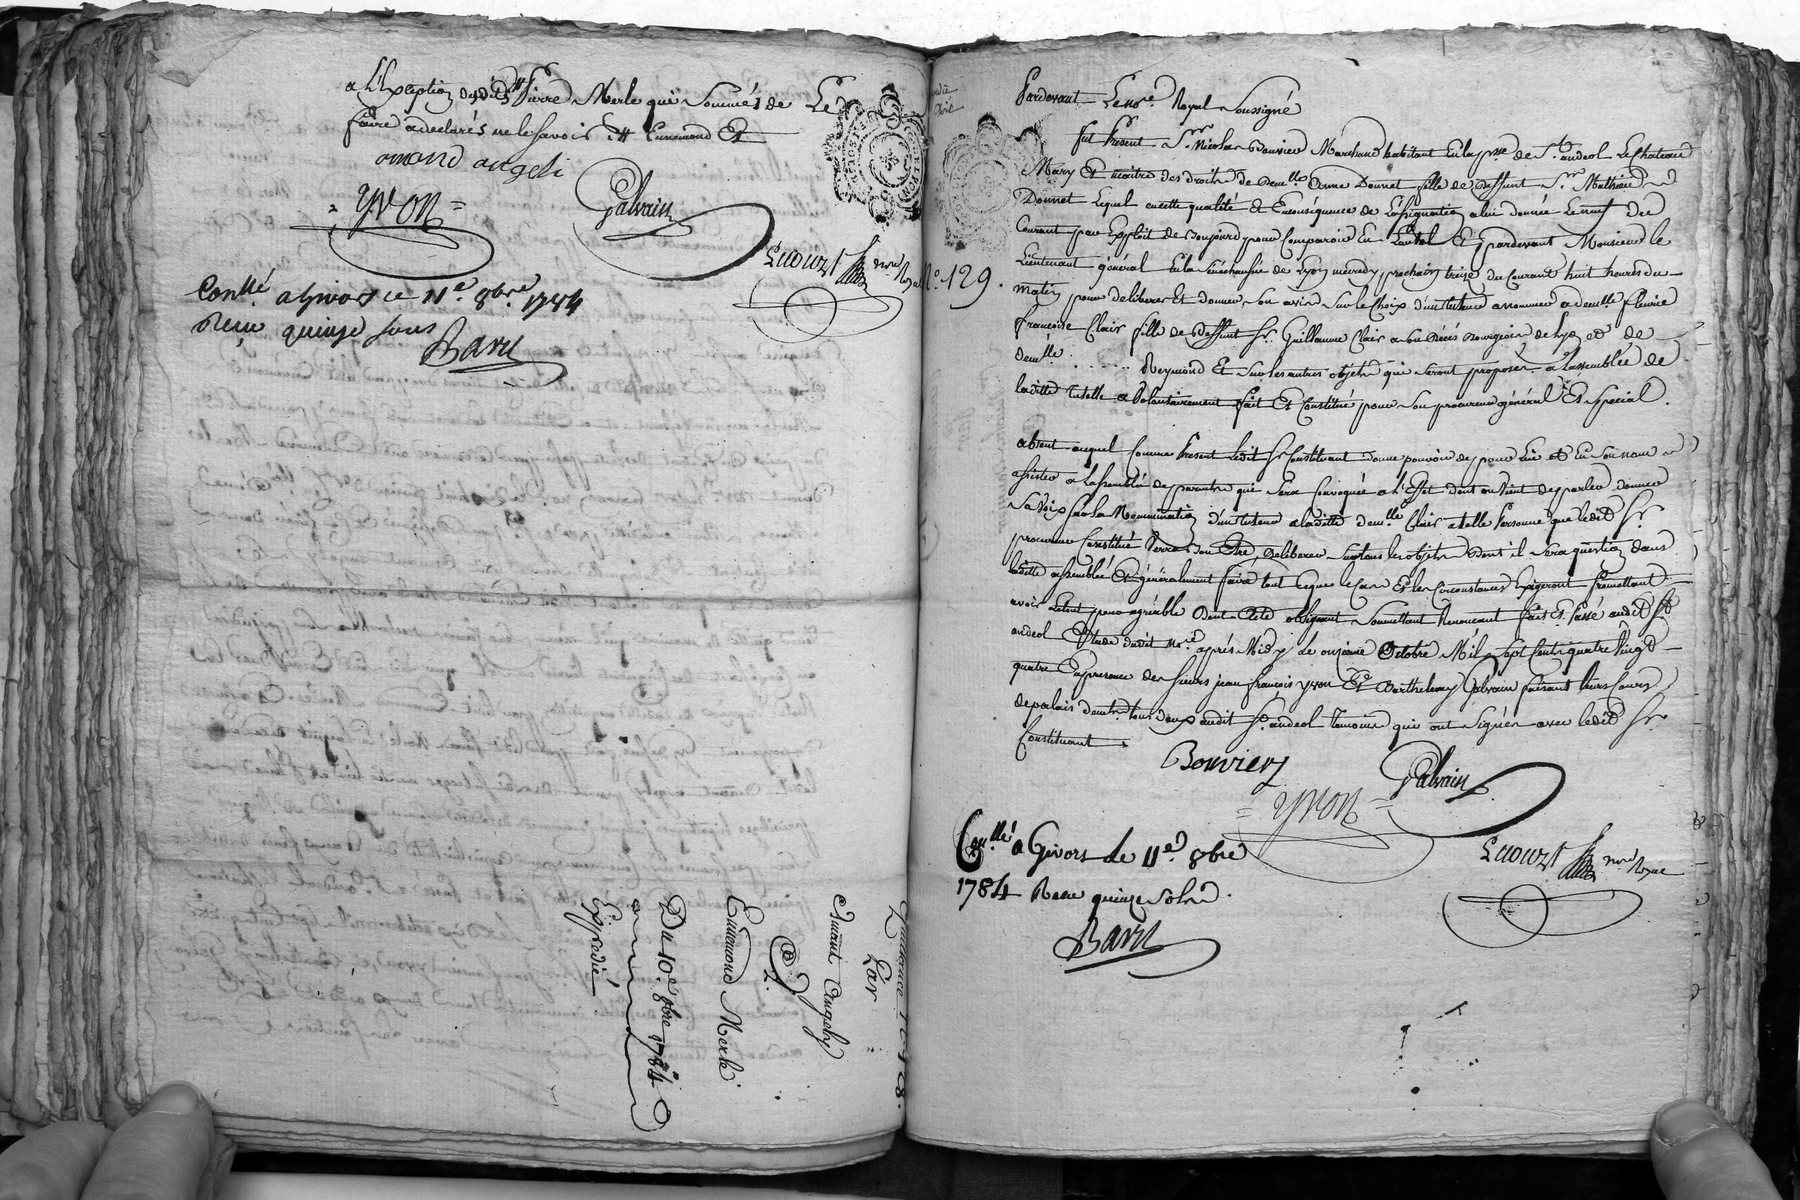 a L'Exception dudit Pierre Merle qui sommés de Le
faire a declarés ne le savoir Emmond Et
amond angeli
yvon
Galvain
notre Royal
Conllé a Givors ce 11e. 8bre 1784
Reçu quinze sous
Baril
Quittance
Par
Amant Angely
a
Emmond Merle
Du 10e. 8bre 1784
Expedié
No. 129.
Pardevant Le nore. Royal Soussigné
fut Present Sr. Nicolas Bouvier Marchand habitant En la psse de St. andeol Le Chateau
Mary Et maitre des droits de demlle Anne Donnet fille de deffunt Sr. Mathieu
Donnet Lequel en cette qualité & En conséquence de L'assignation a lui donnée Le neuf du
Courant par Exploit de pour Comparoir En L'autel Et pardevant Monsieur le
Lieutenant général En la Sénéchaussée de Lyon mercredy prochain treize du Courant huit heures du
matin pour deliberer Et donner son avis sur le Choix d'un tuteur a nommer a demlle fleurie
françoise Clair fille de deffunt Sr. Guillaume Clair a son décés Bourgeois de Lyon et de
demlle ..... Reymond Et sur les autres objets qui seront proposés a L'assemblée de
laditte tutelle a Volontairement fait Et Constitué pour son procureur général Et spécial.
absent auquel Comme Present Ledit Sr. Constituant donne pouvoir de pour Lui et En son nom
assister a L'assemblée de parents qui sera Convoquée a L'Effet dont on vient de parler donner
sa Voix sur la Nommination d'un tuteur a laditte demlle Clair a telle Personne que ledit Sr.
procureur Constitué Verra bon Etre, deliberer sur tous les objets dont il sera question dans
laditte assemblée Et généralement faire tout ce que le Cas Et les Circonstances Exigeront Promettant
avoir Le tout pour agréable obligeant Soumettant Renonçant fait Et Passé audit St.
andeol Etude dudit Nore. aprés Midy Le onzieme Octobre Mil sept Cent quatre Vingt
quatre En presence des sieurs jean françois yvon Et Barthelemy Galvain faisant leurs Cours
de palais demeurants tous deux audit St. andeol temoins qui ont signés avec ledit Sr.
Constituant
Bouvier
Galvain
yvon
Conllé a Givors Le 11e. 8bre
1784 Reçu quinze sols.
notre Royal
Baril